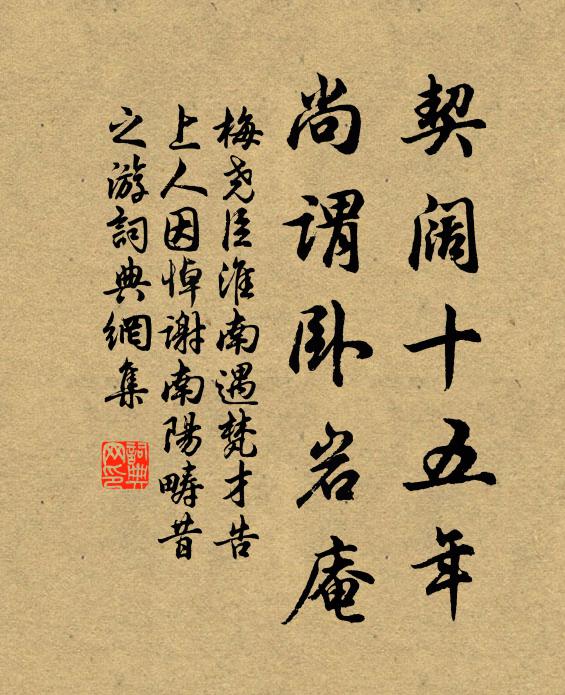 契阔十五年
尚谓卧岩庵
梅尧臣淮南遇梵才告
上人因悼谢南阳畴昔
之游词典网集
词典
网印